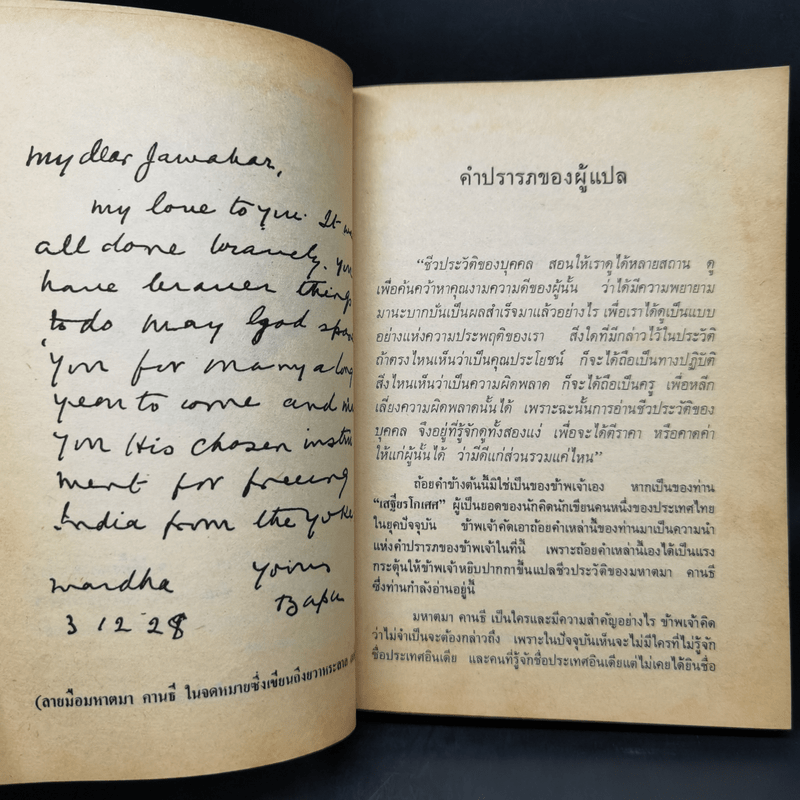 My dear Jawahar,
My love to you. It
all done bravely. You
have braver things
to do may God spare
you for many a long
year to come and
you His chosen instru
ment for freeing
India from the yoke
Wardha Yours
3 12 28 Bapu
(ลายมือมหาตมา คานธี ในจดหมายซึ่งเขียนถึงยวาหระลาล
คำปรารภของผู้แปล
“ชีวประวัติของบุคคล สอนให้เราดูได้หลายสถาน ดู
เพื่อค้นคว้าหาคุณงามความดีของผู้นั้น ว่าได้มีความพยายาม
มานะบากบั่นเป็นผลสำเร็จมาแล้วอย่างไร เพื่อเราได้ดูเป็นแบบ
อย่างแห่งความประพฤติของเรา สิ่งใดที่มีกล่าวไว้ในประวัติ
ถ้าตรงไหนเห็นว่าเป็นคุณประโยชน์ ก็จะได้ถือเป็นทางปฏิบัติ
สิ่งไหนเห็นว่าเป็นความผิดพลาด ก็จะได้ถือเป็นครู เพื่อหลีก
เลี่ยงความผิดพลาดนั้นได้ เพราะฉะนั้นการอ่านชีวประวัติของ
บุคคล จึงอยู่ที่รู้จักดูทั้งสองแง่ เพื่อจะได้ตีราคา หรือคาดค่า
ให้แก่ผู้นั้นได้ ว่ามีดีแก่ส่วนรวมแค่ไหน”
ถ้อยคำข้างต้นนี้มิใช่เป็นของข้าพเจ้าเอง หากเป็นของท่าน
“เสฐียรโกเศศ” ผู้เป็นยอดของนักคิดนักเขียนคนหนึ่งของประเทศไทย
ในยุคปัจจุบัน ข้าพเจ้าคัดเอาถ้อยคำเหล่านี้ของท่านมาเป็นความนำ
แห่งคำปรารภของข้าพเจ้าในที่นี้ เพราะถ้อยคำเหล่านี้เองได้เป็นแรง
กระตุ้นให้ข้าพเจ้าหยิบปากกาขึ้นแปลชีวประวัติของมหาตมา คานธี
ซึ่งท่านกำลังอ่านอยู่นี้
มหาตมา คานธี เป็นใครและมีความสำคัญอย่างไร ข้าพเจ้าคิด
ว่าไม่จำเป็นจะต้องกล่าวถึง เพราะในปัจจุบันเห็นจะไม่มีใครที่ไม่รู้จัก
ชื่อประเทศอินเดีย และคนที่รู้จักชื่อประเทศอินเดียแต่ไม่เคยได้ยินชื่อ